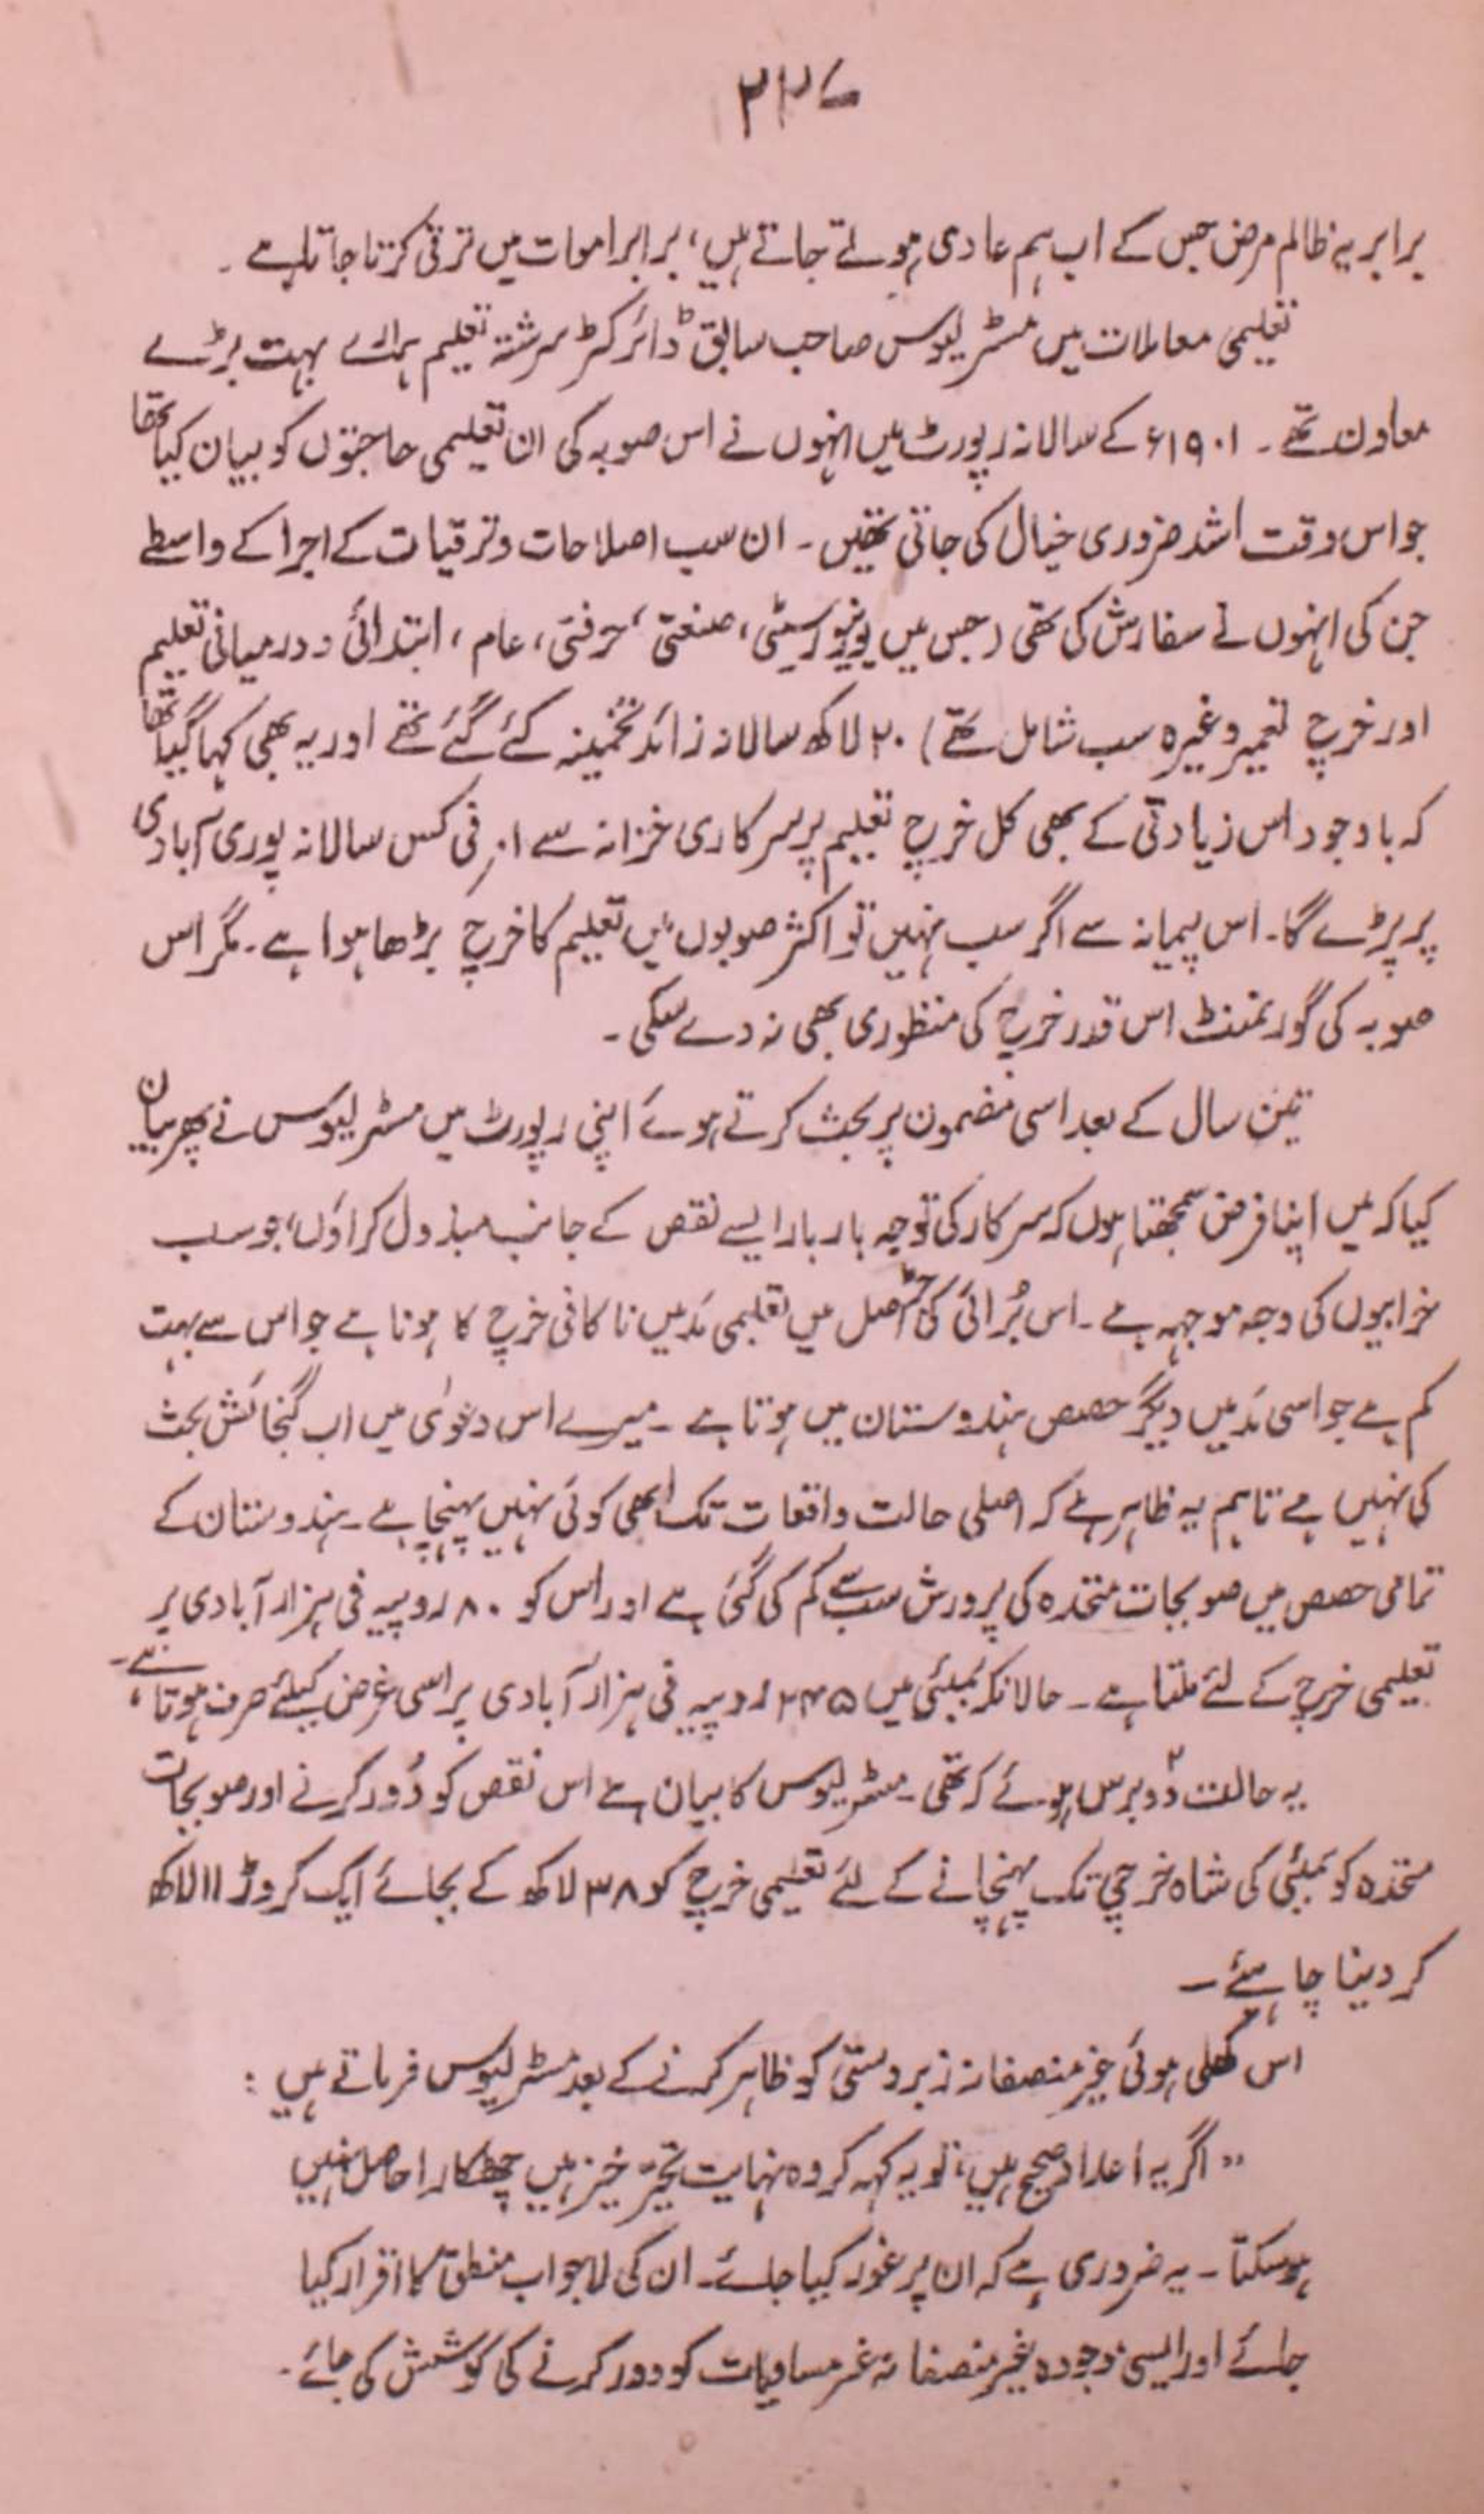 ۲۲۷
برابر یہ ظالم مرض جس کے اب ہم عادی ہوئے جاتے ہیں، برابر اموات میں ترقی کرتا جاتا ہے ۔
تعلیمی معاملات میں مسٹر لیوس صاحب سابق ڈائرکٹر سرشتۂ تعلیم ہمارے بہت بڑے
معاون تھے ۔ ۱۹۰۱ء کے سالانہ رپورٹ میں انہوں نے اس صوبہ کی ان تعلیمی حاجتوں کو بیان کیا تھا
جو اس وقت اشد ضروری خیال کی جاتی تھیں ۔ ان سب اصلاحات و ترقیات کے اجرا کے واسطے
جن کی انہوں نے سفارش کی تھی (جس میں یونیورسیٹی، صنعتی، حرفتی، عام، ابتدائی و درمیانی تعلیم
اور خرچ تعمیر وغیرہ سب شامل تھے) ۲۰ لاکھ سالانہ زائد تخمینہ کئے گئے تھے اور یہ بھی کہا گیا تھا
کہ باوجود اس زیادتی کے بھی کل خرچ تعلیم پر سرکاری خزانہ سے ۱ر فی کس سالانہ پوری آبادی
پر پڑے گا۔ اس پیمانہ سے اگر سب نہیں تو اکثر صوبوں میں تعلیم کا خرچ بڑھا ہوا ہے ۔ مگر اس
صوبہ کی گورنمنٹ اس قدر خرچ کی منظوری بھی نہ دے سکی ۔
تین سال کے بعد اسی مضمون پر بحث کرتے ہوئے اپنی رپورٹ میں مسٹر لیوس نے پھر بیان
کیا کہ میں اپنا فرض سمجھتا ہوں کہ سرکار کی توجہ بار بار ایسے نقص کے جانب مبذول کراؤں، جو سب
خرابیوں کی وجہ موجہہ ہے ۔ اس بُرائی کی جڑ اصل میں تعلیمی مَد میں ناکافی خرچ کا ہونا ہے جو اس سے بہت
کم ہے جو اسی مَد میں دیگر حصص ہندوستان میں ہوتا ہے ۔ میرے اس دعویٰ میں اب گنجائش بحث
کی نہیں ہے تاہم یہ ظاہر ہے کہ اصلی حالت واقعات تک ابھی کوئی نہیں پہنچا ہے ۔ ہندوستان کے
تمامی حصص میں صوبجات متحدہ کی پرورش سب سے کم کی گئی ہے اور اس کو ۸۰ روپیہ فی ہزار آبادی پر
تعلیمی خرچ کے لئے ملتا ہے ۔ حالانکہ بمبئی میں ۲۴۵ روپیہ فی ہزار آبادی پر اسی غرض کیلئے صرف ہوتا ہے ۔
یہ حالت دو ۲ برس ہوئے کہ تھی ۔ مسٹر لیوس کا بیان ہے اس نقص کو دُور کرنے اور صوبجات
متحدہ کو بمبئی کی شاہ خرچی تک پہنچانے کے لئے تعلیمی خرچ کو ۳۸ لاکھ کے بجائے ایک کروڑ ۱۱ لاکھ
کر دینا چاہیئے ۔
اس کھلی ہوئی غیر منصفانہ زبردستی کو ظاہر کرنے کے بعد مسٹر لیوس فرماتے ہیں :
"اگر یہ اعداد صحیح ہیں، تو یہ کہہ کر وہ نہایت تحیّر خیز ہیں چھٹکارا حاصل نہیں
ہو سکتا ۔ یہ ضروری ہے کہ ان پر غور کیا جائے۔ ان کی لاجواب منطق کا اقرار کیا
جائے اور ایسی موجودہ غیر منصفانہ غیر مساویات کو دور کرنے کی کوشش کی جائے ۔